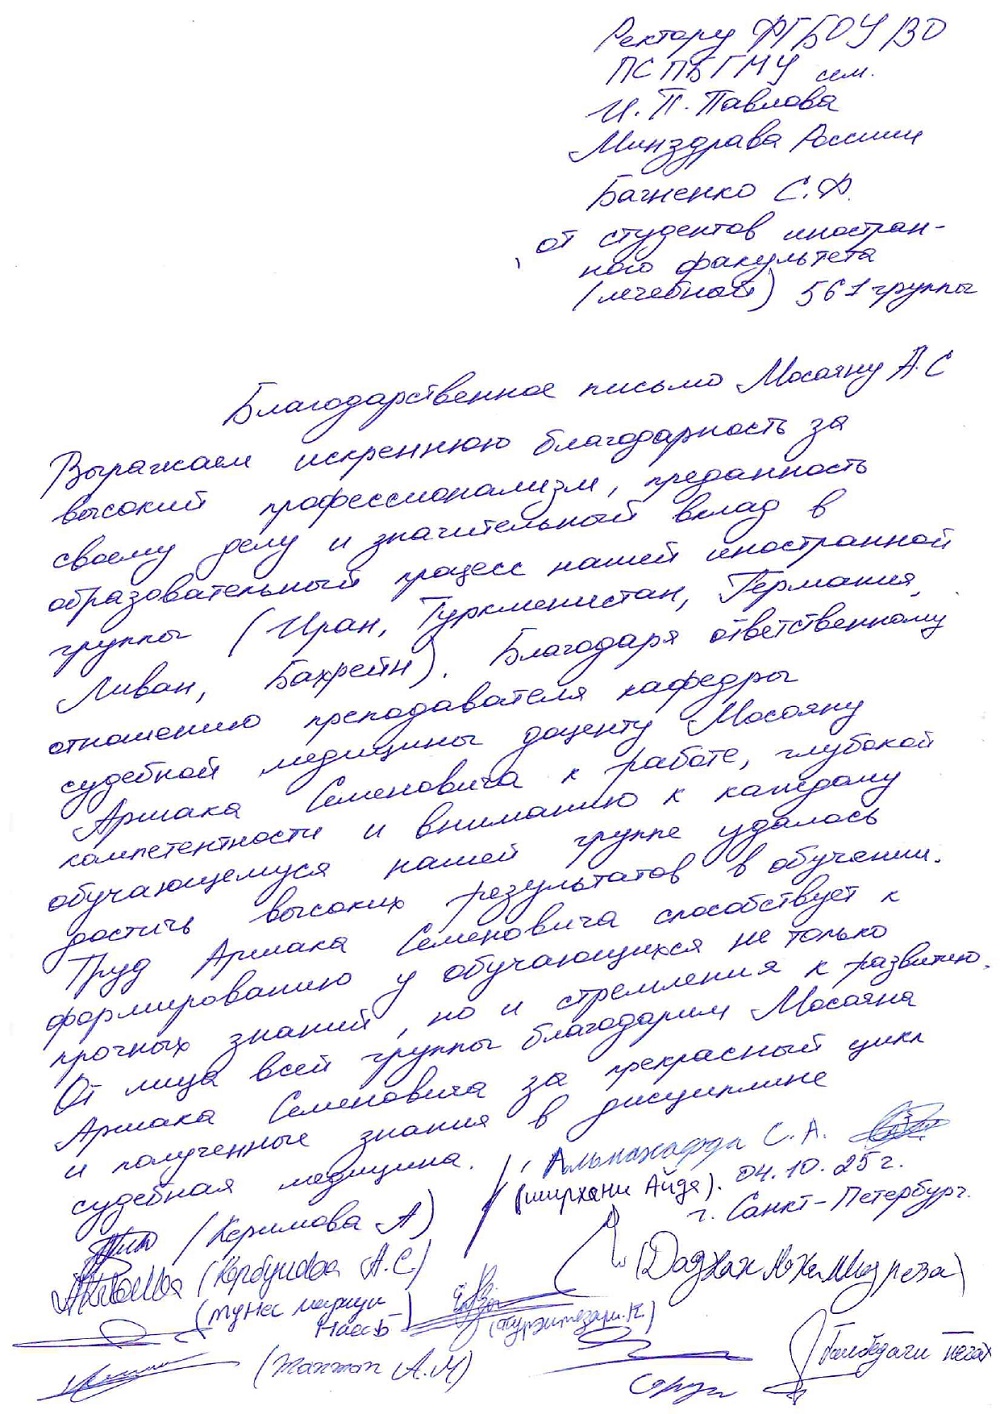 Ректору ФГБОУ ВО
ПСПбГМУ им.
И. П. Павлова
Минздрава России
Багненко С.Ф.
от студентов иностран-
ного факультета
(лечебный) 561 группы
Благодарственное письмо Мосояну А.С
Выражаем искреннюю благодарность за
высокий профессионализм, преданность
своему делу и значительный вклад в
образовательный процесс нашей иностранной
группы (Иран, Туркменистан, Германия,
Ливан, Бахрейн). Благодаря ответственному
отношению преподавателя кафедры
судебной медицины доценту Мосояну
Аршака Семеновича к работе, глубокой
компетентности и вниманию к каждому
обучающемуся нашей группе удалось
достичь высоких результатов в обучении.
Труд Аршака Семеновича способствует к
формированию у обучающихся не только
прочных знаний, но и стремления к развитию.
От лица всей группы благодарим Мосояна
Аршака Семеновича за прекрасный цикл
и полученные знания в дисциплине
судебная медицина.
С. А.
(ширхани Айда). 04.10.25г.
г. Санкт-Петербург.
(Керимова А)
А.С)
А.М)